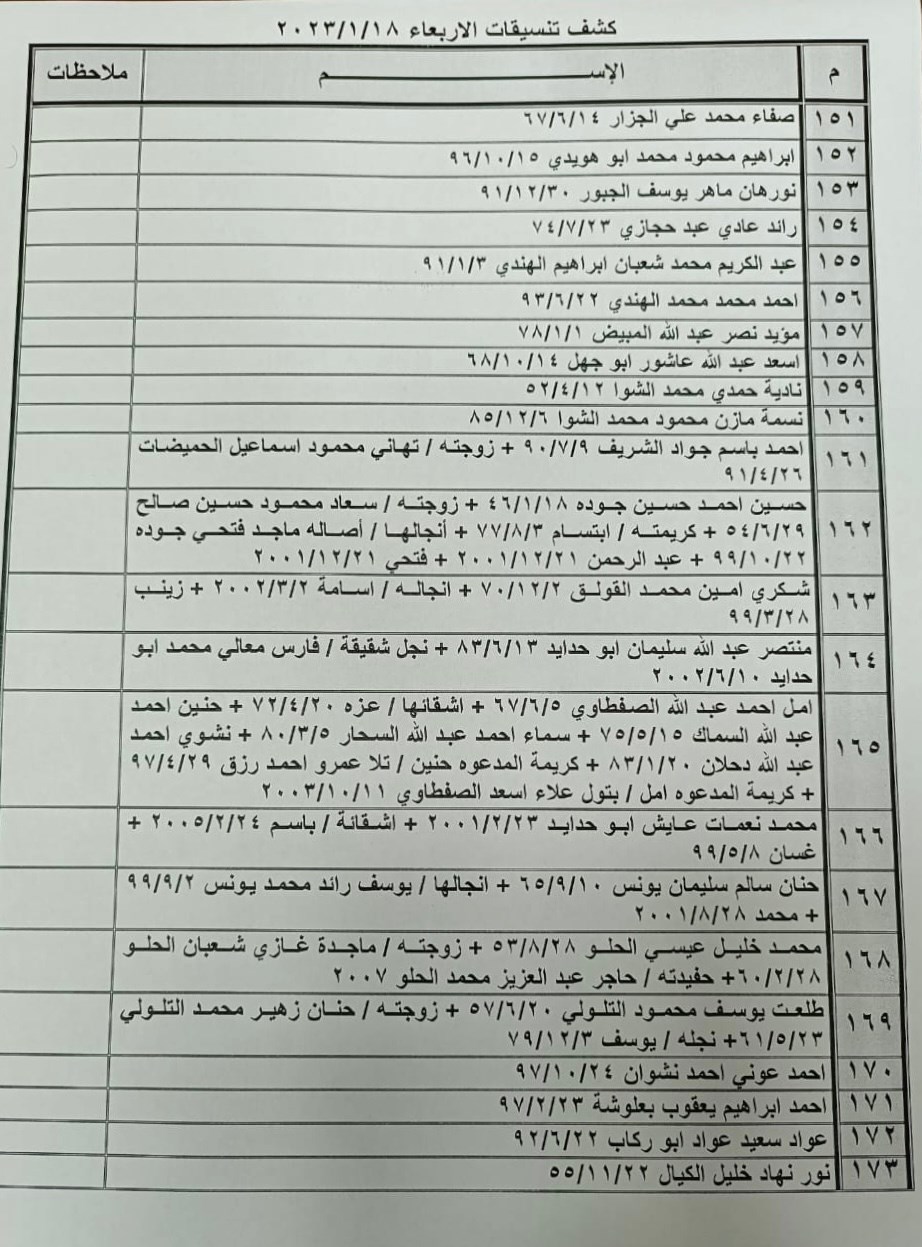 كشف تنسيقات الاربعاء ٢٠٢٣/١/١٨
م الإســـــــم ملاحظات
١٥١ صفاء محمد علي الجزار ٦٧/٦/١٤
١٥٢ ابراهيم محمود محمد ابو هويدي ٩٦/١٠/١٥
١٥٣ نورهان ماهر يوسف الجبور ٩١/١٢/٣٠
١٥٤ رائد عادي عبد حجازي ٧٤/٧/٢٣
١٥٥ عبد الكريم محمد شعبان ابراهيم الهندي ٩١/١/٣
١٥٦ احمد محمد محمد الهندي ٩٣/٦/٢٢
١٥٧ مؤيد نصر عبد الله المبيض ٧٨/١/١
١٥٨ اسعد عبد الله عاشور ابو جهل ٦٨/١٠/١٤
١٥٩ نادية حمدي محمد الشوا ٥٢/٤/١٢
١٦٠ نسمة مازن محمود محمد الشوا ٨٥/١٢/٦
١٦١ احمد باسم جواد الشريف ٩٠/٧/٩ + زوجته / تهاني محمود اسماعيل الحميضات
٩١/٤/٢٦
١٦٢ حسين احمد حسين جوده ٤٦/١/١٨ + زوجته / سعاد محمود حسين صالح
٥٤/٦/٢٩ + كريمته / ابتسام ٧٧/٨/٣ + أنجالها / أصاله ماجد فتحي جوده
٩٩/١٠/٢٢ + عبد الرحمن ٢٠٠١/١٢/٢١ + فتحي ٢٠٠١/١٢/٢١
١٦٣ شكري امين محمد القولق ٧٠/١٢/٢ + انجاله / اسامة ٢٠٠٢/٣/٢ + زينب
٩٩/٣/٢٨
١٦٤ منتصر عبد الله سليمان ابو حدايد ٨٣/٦/١٣ + نجل شقيقة / فارس معالي محمد ابو
حدايد ٢٠٠٢/٦/١٠
١٦٥ امل احمد عبد الله الصفطاوي ٦٧/٦/٥ + اشقائها / عزه ٧٢/٤/٢٠ + حنين احمد
عبد الله السماك ٧٥/٥/١٥ + سماء احمد عبد الله السحار ٨٠/٣/٥ + نشوي احمد
عبد الله دحلان ٨٣/١/٢٠ + كريمة المدعوه حنين / تلا عمرو احمد رزق ٩٧/٤/٢٩
+ كريمة المدعوه امل / بتول علاء اسعد الصفطاوي ٢٠٠٣/١٠/١١
١٦٦ محمد نعمات عايش ابو حدايد ٢٠٠١/٢/٢٣ + اشقائة / باسم ٢٠٠٥/٢/٢٤ +
غسان ٩٩/٥/٨
١٦٧ حنان سالم سليمان يونس ٦٥/٩/١٠ + انجالها / يوسف رائد محمد يونس ٩٩/٩/٢
+ محمد ٢٠٠١/٨/٢٨
١٦٨ محمد خليل عيسي الحلو ٥٣/٨/٢٨ + زوجته / ماجدة غازي شعبان الحلو
٦٠/٢/٢٨+ حفيدته / حاجر عبد العزيز محمد الحلو ٢٠٠٧
١٦٩ طلعت يوسف محمود التلولي ٥٧/٦/٢٠ + زوجته / حنان زهير محمد التلولي
٦١/٥/٢٣+ نجله / يوسف ٧٩/١٢/٣
١٧٠ احمد عوني احمد نشوان ٩٧/١٠/٢٤
١٧١ احمد ابراهيم يعقوب بعلوشة ٩٧/٢/٢٣
١٧٢ عواد سعيد عواد ابو ركاب ٩٢/٦/٢٢
١٧٣ نور نهاد خليل الكيال ٥٥/١١/٢٢